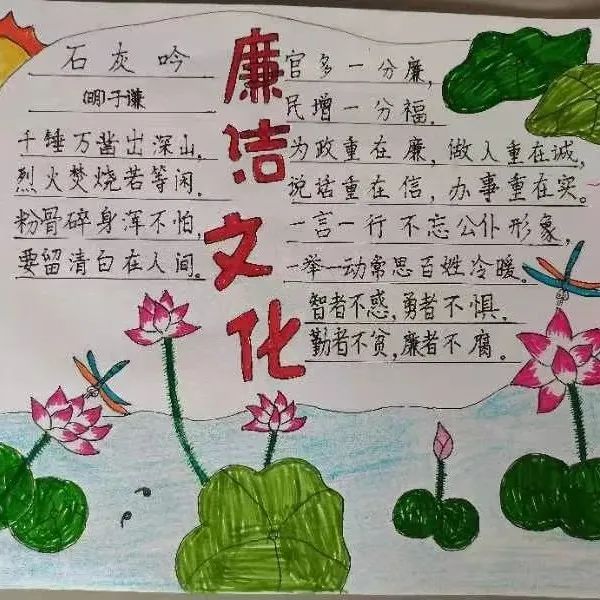 石灰吟
(明)于谦
千锤万凿出深山,
烈火焚烧若等闲.
粉骨碎身浑不怕,
要留清白在人间。
廉洁文化
官多一分廉,
民增一分福.
为政重在廉,做人重在诚,
说话重在信,办事重在实。
一言一行不忘公仆形象,
一举一动常思百姓冷暖.
智者不惑,勇者不惧.
勤者不贫,廉者不腐。